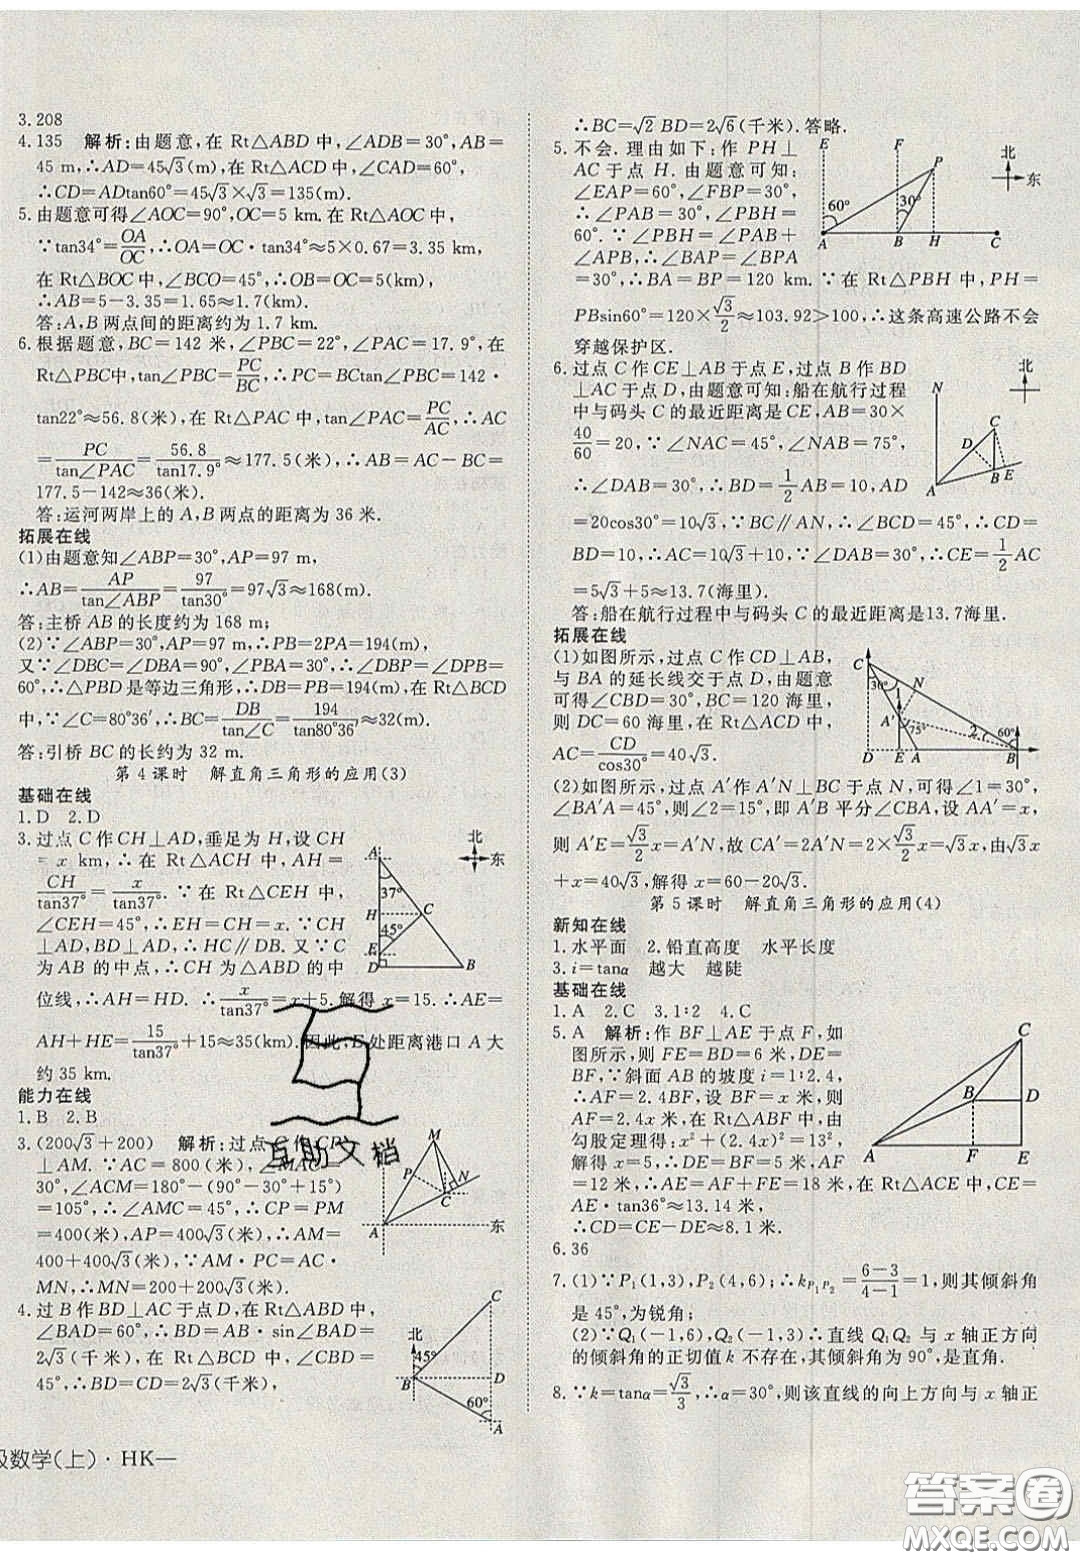 3.208
4.135 解析:由题意,在 Rt△ABD 中,∠ADB=30°,AB=
45 m,∴AD=45√3(m),在 Rt△ACD 中,∠CAD=60°,
∴CD=ADtan60°=45√3×√3=135(m).
5.由题意可得∠AOC=90°,OC=5 km.在 Rt△AOC 中,
∵tan34°=OA/OC,∴OA=OC·tan34°≈5×0.67=3.35 km.
在 Rt△BOC 中,∠BCO=45°,∴OB=OC=5(km),
∴AB=5-3.35=1.65≈1.7(km).
答:A,B 两点间的距离约为 1.7 km.
6.根据题意,BC=142 米,∠PBC=22°,∠PAC=17.9°,在
Rt△PBC中,tan∠PBC=PC/BC,∴PC=BCtan∠PBC=142·
tan22°≈56.8(米),在 Rt△PAC 中,tan∠PAC=PC/AC,∴AC
=PC/tan∠PAC=56.8/tan17.9°≈177.5(米),∴AB=AC-BC=
177.5-142≈36(米).
答:运河两岸上的 A,B 两点的距离为 36 米.
拓展在线
(1)由题意知∠ABP=30°,AP=97 m,
∴AB=AP/tan∠ABP=97/tan30°=97√3≈168(m).
答:主桥 AB 的长度约为 168 m;
(2)∵∠ABP=30°,AP=97 m,∴PB=2PA=194(m),
又∵∠DBC=∠DBA=90°,∠PBA=30°,∴∠DBP=∠DPB=
60°,∴△PBD 是等边三角形,∴DB=PB=194(m),在 Rt△BCD
中,∵∠C=80°36′,∴BC=DB/tan∠C=194/tan80°36′≈32(m).
答:引桥 BC 的长约为 32 m.
第 4 课时 解直角三角形的应用(3)
基础在线
1.D 2.D
3.过点 C 作 CH⊥AD,垂足为 H,设 CH
=x km,∴在 Rt△ACH 中,AH=
CH/tan37°=x/tan37°.∵在 Rt△CEH 中,
∠CEH=45°,∴EH=CH=x,∵CH
⊥AD,BD⊥AD,∴HC∥DB.又∵C
为 AB 的中点,∴CH 为△ABD 的中
位线,∴AH=HD.∴x/tan37°=x+5.解得 x=15.∴AE=
AH+HE=15/tan37°+15≈35(km).因此,E 处距离港口 A 大
约 35 km.
能力在线
1.B 2.B
3.(200√3+200) 解析:过点 C 作 CP
⊥AM.∵AC=800(米),∠MAC=
30°,∠ACM=180°-(90°-30°+15°)
=105°,∴∠AMC=45°,∴CP=PM
=400(米),AP=400√3(米),∴AM=
400+400√3(米).∵AM·PC=AC·
MN,∴MN=200+200√3(米).
4.过 B 作 BD⊥AC于点 D,在 Rt△ABD 中,
∠BAD=60°,∴BD=AB·sin∠BAD=
2√3(千米),在 Rt△BCD 中,∠CBD=
45°,∴BD=CD=2√3(千米),
级数学(上)·HK—
∴BC=√2 BD=2√6(千米).答略.
5.不会.理由如下:作 PH⊥
AC于点 H.由题意可知:
∠EAP=60°,∠FBP=30°,
∴∠PAB=30°,∠PBH=
60°.∵∠PBH=∠PAB+
∠APB,∴∠BAP=∠BPA
=30°,∴BA=BP=120 km.在 Rt△PBH 中,PH=
PBsin60°=120×√3/2≈103.92>100,∴这条高速公路不会
穿越保护区.
6.过点 C 作CE⊥AB于点 E,过点 B 作 BD
⊥AC于点 D,由题意可知:船在航行过程
中与码头 C 的最近距离是 CE,AB=30×
40/60=20,∵∠NAC=45°,∠NAB=75°,
∴∠DAB=30°,∴BD=1/2AB=10,∴AD
=20cos30°=10√3,∵BC∥AN,∴∠BCD=45°,∴CD=
BD=10,∴AC=10√3+10,∵∠DAB=30°,∴CE=1/2AC
=5√3+5≈13.7(海里)
答:船在航行过程中与码头 C 的最近距离是13.7海里.
拓展在线
(1)如图所示,过点 C 作 CD⊥AB,
与 BA 的延长线交于点 D,由题意
可得∠CBD=30°,BC=120 海里,
则 DC=60 海里,在 Rt△ACD 中,
AC=CD/cos30°=40√3.
(2)如图所示,过点 A′作 A′N⊥BC于点 N,可得∠1=30°,
∠BA′A=45°,则∠2=15°,即 A′B 平分∠CBA,设 AA′=x,
则 A′E=√3/2x=A′N,故 CA′=2A′N=2×√3/2x=√3x,由√3x
+x=40√3,解得 x=60-20√3.
第 5 课时 解直角三角形的应用(4)
新知在线
1.水平面 2.铅直高度 水平长度
3.i=tanα 越大 越陡
基础在线
1.A 2.C 3.1∶2 4.C
5.A 解析:作 BF⊥AE 于点 F,如
图所示,则 FE=BD=6 米,DE=
BF,∵斜面 AB 的坡度 i=1∶2.4,
∴AF=2.4BF,设 BF=x 米,则
AF=2.4x 米,在 Rt△ABF 中,由
勾股定理得:x²+(2.4x)²=13²,
解得 x=5,∴DE=BF=5 米,AF
=12 米,∴AE=AF+FE=18 米,在 Rt△ACE 中,CE=
AE·tan36°≈13.14 米,
∴CD=CE-DE≈8.1米.
6.36
7.(1)∵P₁(1,3),P₂(4,6);∴k_P₁P₂=(6-3)/(4-1)=1,则其倾斜角
是 45°,为锐角;
(2)∵Q₁(-1,6),Q₂(-1,-3);∴直线 Q₁Q₂ 与 x 轴正方向
的倾斜角的正切值 k 不存在,其倾斜角为 90°,是直角.
8.∵k=tanα=√3/3,∴α=30°,则该直线的向上方向与 x 轴正
互助文档
答案圈
MXQE.COM